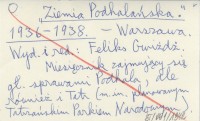 "Ziemia Podhalańska."
1936-1938. – Warszawa.
Wyd. i red: Feliks Gwiżdż.
Miesięcznik zajmujący się
gł. sprawami Podhala, ale
również i Tatr (m.in. planowanym
Tatrzańskim Parkiem Narodowym).